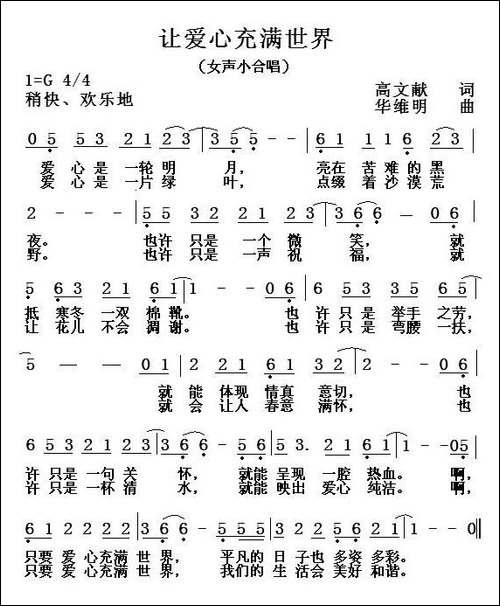 让爱心充满世界
（女声小合唱）
1=G 4/4
高文献 词
稍快、欢乐地
华维明 曲
0 5 5 3 2 1 2 3 | 3 5 5 - - | 6 1 1 1 1 6 2 3 |
爱 心 是 一轮 明 月， 亮在 苦 难的 黑
爱 心 是 一片 绿 叶， 点缀 着 沙漠 荒
2 - - - | 5 5 3 2 2 1 2 3 | 3 6 6 - 0 6 |
夜。 也许 只是 一个 微 笑， 就
野。 也许 只是 一声 祝 福， 就
5 6 3 2 1 6 1 | 1 - - 0 1 | 2 3 2 3 3 5 6 5 |
抵 寒冬 一双 棉 靴。 也 许 只是 举手 之劳，
让 花儿 不会 凋 谢。 也 许 只是 弯腰 一扶，
5 - - 0 1 | 2 2 1 6 6 1 3 2 | 2 - - 0 6 |
就 能 体现 情真 意切， 也
就 会 让人 春意 满怀， 也
6 5 3 2 1 2 3 | 3 6 6 - 5 6 | 5 3. 2 1 6 1 | 1 - - 0 5 |
许 只是 一句 关 怀， 就能 呈现 一腔 热血。 啊，
许 只是 一杯 清 水， 就能 映出 爱心 纯洁。 啊，
6 1 2 2 2 1 2 3 | 3 6 6 - 5 6 | 5 5 3 2 1 2 6 2 | 2 - - 0 |
只要 爱 心充满 世 界， 平凡的 日 子也 多姿 多彩。
只要 爱 心充满 世 界， 我们的 生 活会 美好 和谐。